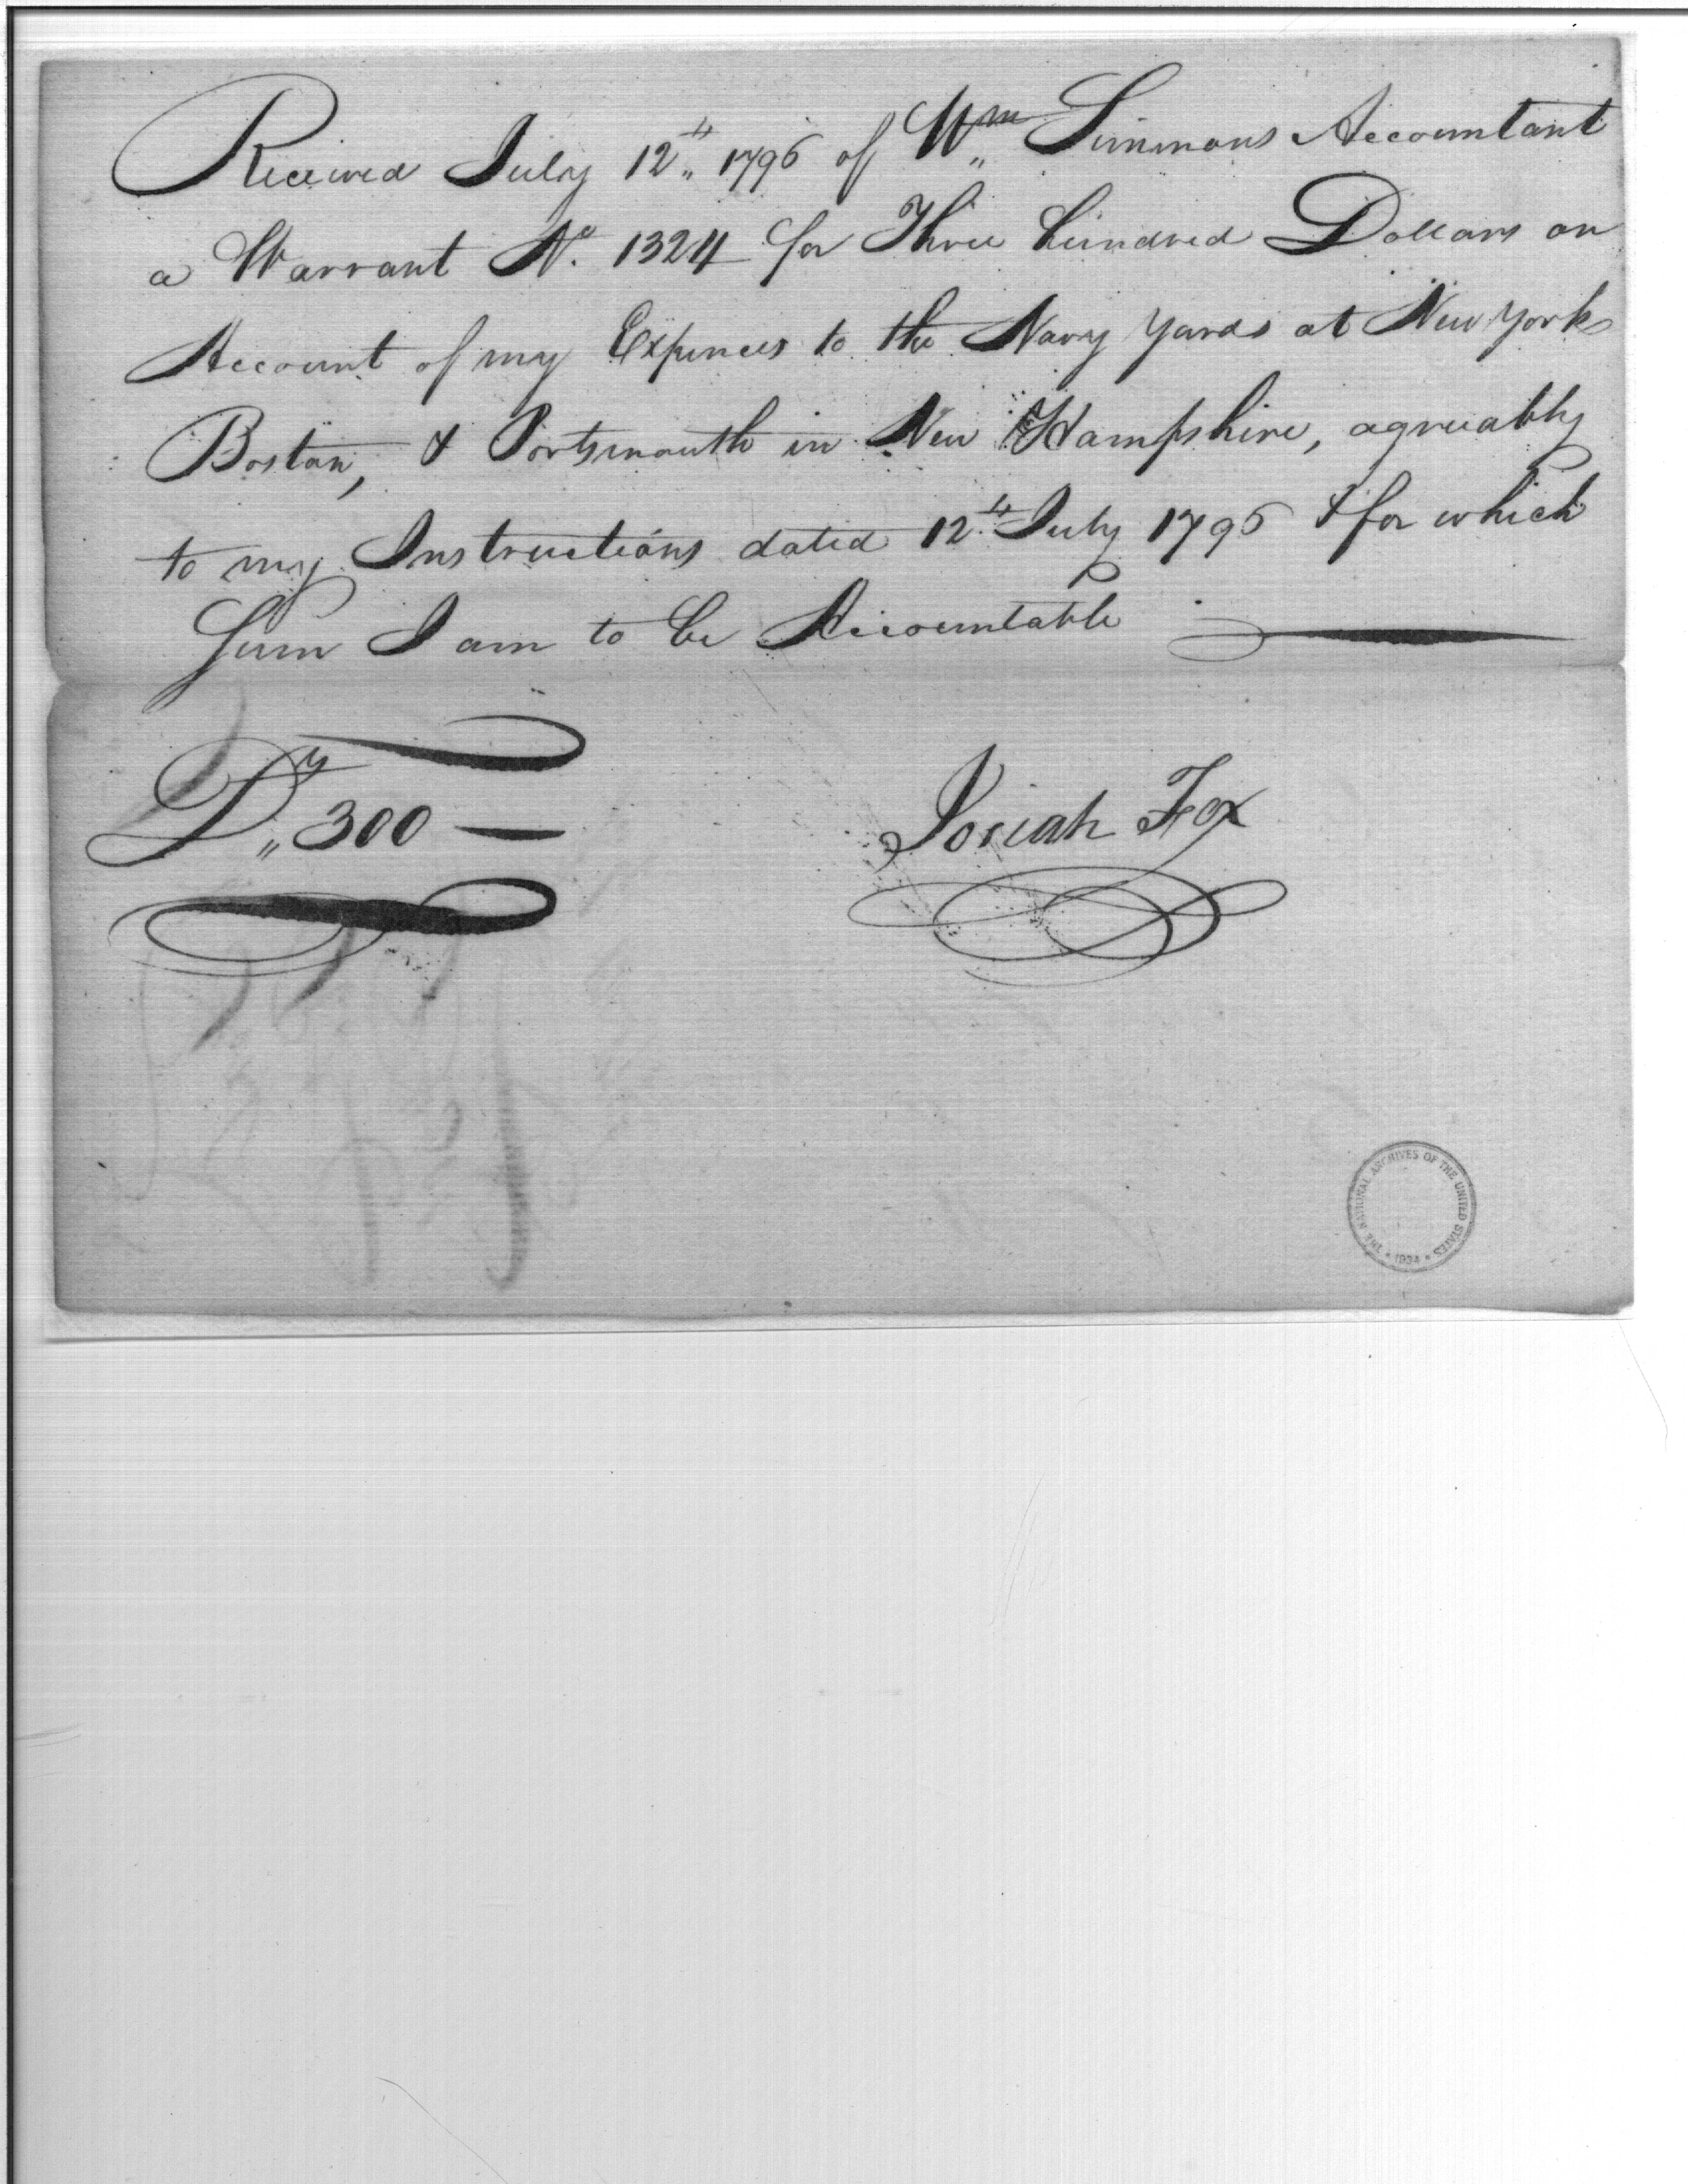 Received July 12th 1796 of Wm Simmons Accountant
a Warrant No. 1324 for Three hundred Dollars on
Account of my Expences to the Navy Yards at New York
Boston, & Portsmouth in New Hampshire, agreeably
to my Instructions dated 12th July 1796 & for which
Sum I am to be Accountable
Drs 300 —
Josiah Fox
THE NATIONAL ARCHIVES OF THE UNITED STATES
1934